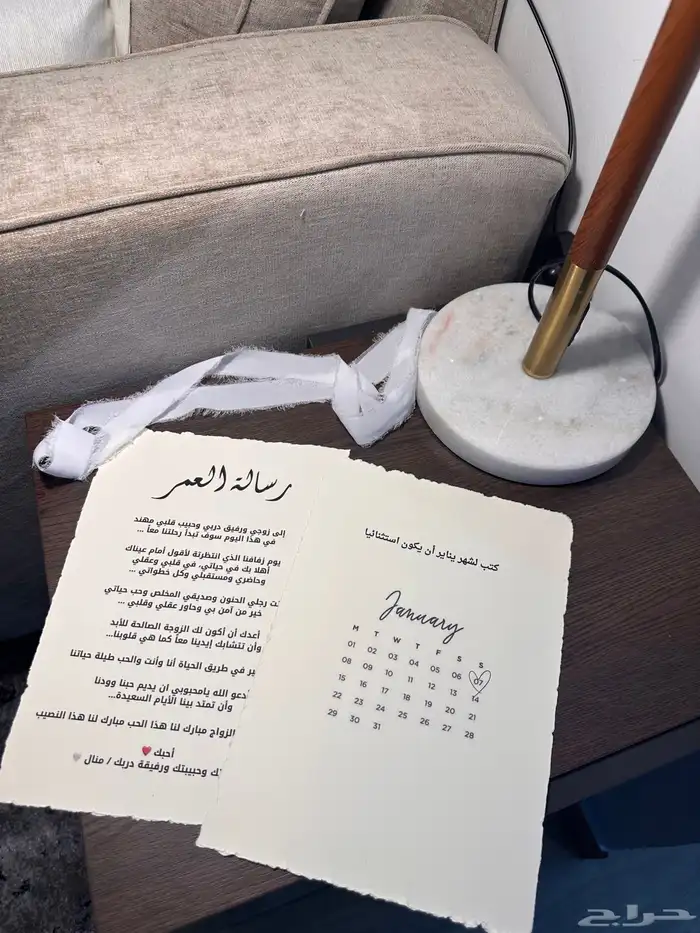 رسالة العمر
إلى زوجي ورفيق دربي وحبيب قلبي مهند
في هذا اليوم سوف تبدأ رحلتنا معاً ...
يوم زفافنا الذي انتظرتة لأقول أمام عيناك
أهلا بك في حياتي، في قلبي وعقلي
وحاضري ومستقبلي وكل خطواتي ...
رجلي الحنون وصديقي المخلص وحب حياتي
خير من آمن بي وحاور عقلي وقلبي ...
أعدك أن أكون لك الزوجة الصالحة للأبد
وأن تتشابك إيدينا معاً كما هي قلوبنا...
في طريق الحياة أنا وأنت والحب طيلة حياتنا
الله يامحبوبي ان يديم حبنا وودنا
وأن تمتد بينا الأيام السعيدة...
الزواج مبارك لنا هذا الحب مبارك لنا هذا النصيب
أحبك ❤
وحبيبتك ورفيقة دربك / منال 🤍
كتب لشهر يناير أن يكون استثنائيا
January
M T W T F S S
01 02 03 04 05 06 07
08 09 10 11 12 13 14
15 16 17 18 19 20 21
22 23 24 25 26 27 28
29 30 31
حراج